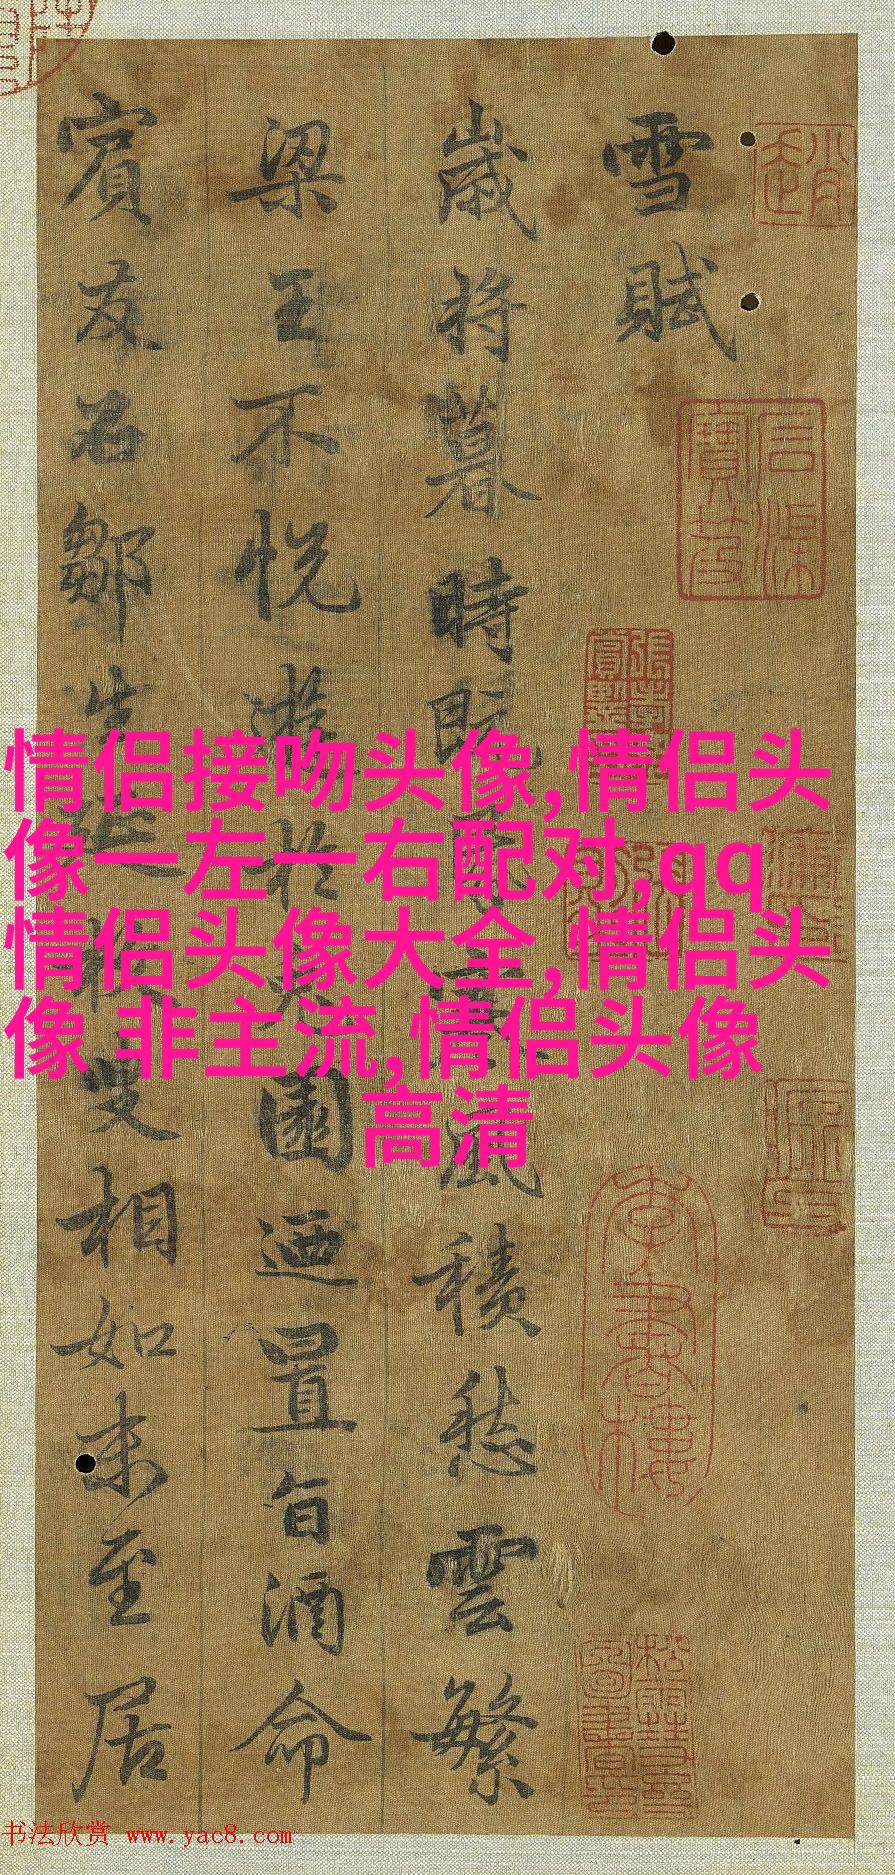 雪賦
歲將暮時既風積愁雲繁
梁王不悅遊於園迺置旨酒命
賓友召鄒生延枚叟相如末至居
情侣接吻头像,情侣头
像一左一右配对,qq
情侣头像大全,情侣头
像 非主流,情侣头像
高清
书法欣赏 www.yac8.com